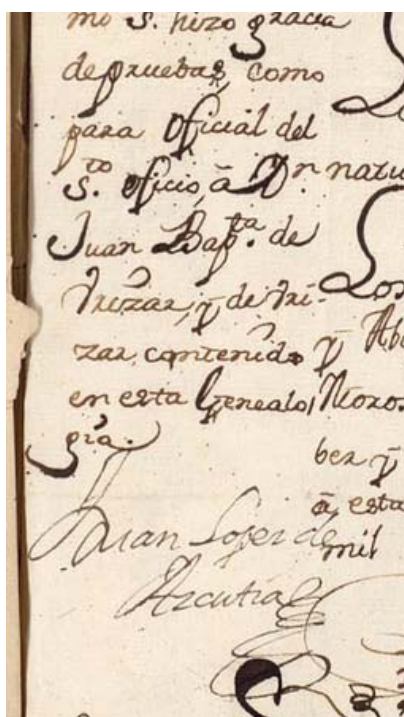 mo S. hizo gracia
de pruebas, como
para Oficial del
S.to oficio, â Dn
Juan Bap.ta de
Yrizar, y de Yri-
zar contenido
en esta Genealo
gia.
Juan Lopez de
Azcutia
natu
Los
y Abe
Moros
ber y
â esta
mil